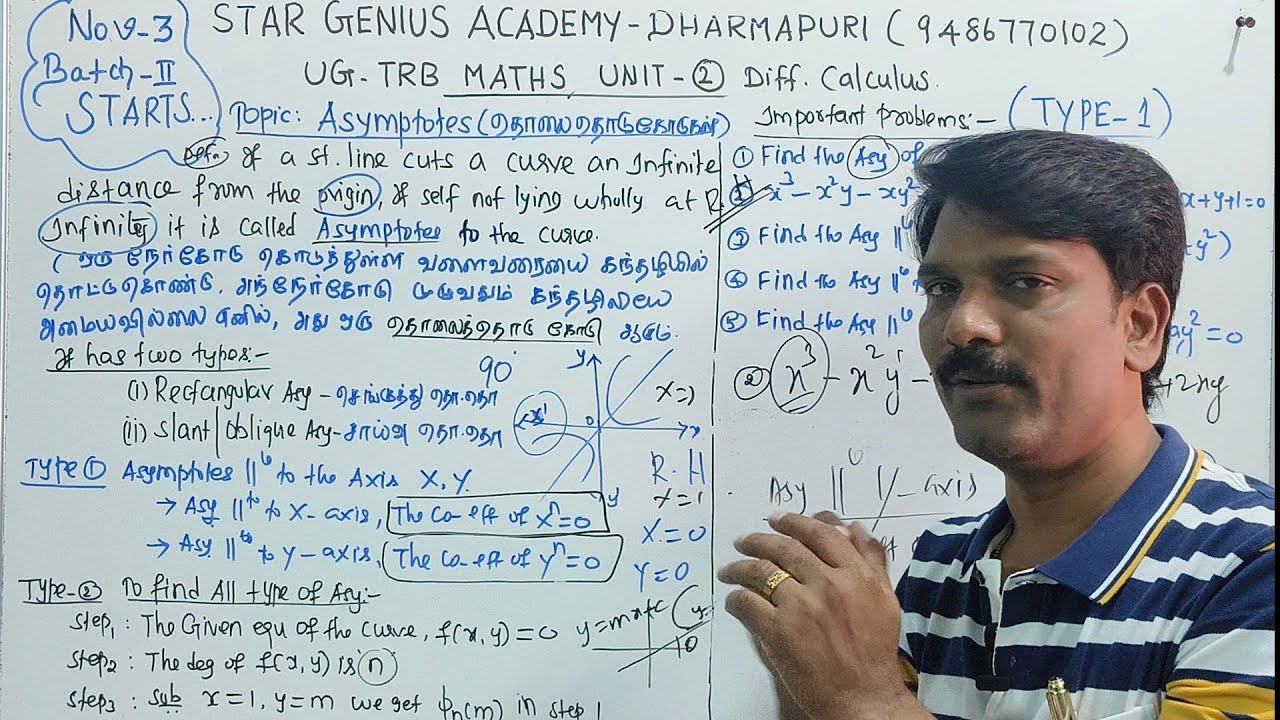 Nov-3
Batch-II
STARTS...
STAR GENIUS ACADEMY-DHARMAPURI (9486770102)
UG-TRB MATHS UNIT-② Diff. Calculus.
Topic: Asymptotes (தொலைதொடுகோடுகள்)
Defn If a st. line cuts a curve an Infinite
distance from the origin, If self not lying wholly at
Infinites it is called Asymptotee to the curve.
( ஒரு நேர்கோடு கொடுத்துள்ள வளைவரையை கந்தழியில்
தொட்டுகொண்டு, அந்நேர்கோடு முழுவதும் கந்தழியிலேயே
அமையவில்லை எனில், அது ஒரு தொலைத்தொடு கோடு ஆகும்.
If has two types:-
(i) Rectangular Asy - செங்குத்து தொ.தொ
(ii) Slant|oblique Asy - சாய்வு தொ.தொ
90°
y
x'
0
x
y
x=)
R.H
x=1
X=0
Y=0
Type① Asymptotes ||ˡ to the Axis X, Y.
→ Asy ||ˡ to X-axis, The Co-eff of xⁿ=0
→ Asy ||ˡ to y-axis, The Co-eff of yⁿ=0
Type-② To find All type of Asy:-
Step₁ : The Given equ of the curve, f(x,y)=0 y=mx+c
Step₂ : The deg of f(x,y) is n
Step₃ : Sub x=1, y=m we get ϕn(m) in Step 1
Important Problems:- (TYPE-1)
① Find the Asy of
② x³-x²y-xy² x+y+1=0
③ Find the Asy ||ˡ +y²)
④ Find the Asy ||ˡ
⑤ Find the Asy ||ˡ ay²=0
② x³-x²y- +2xy
Asy || y-axis